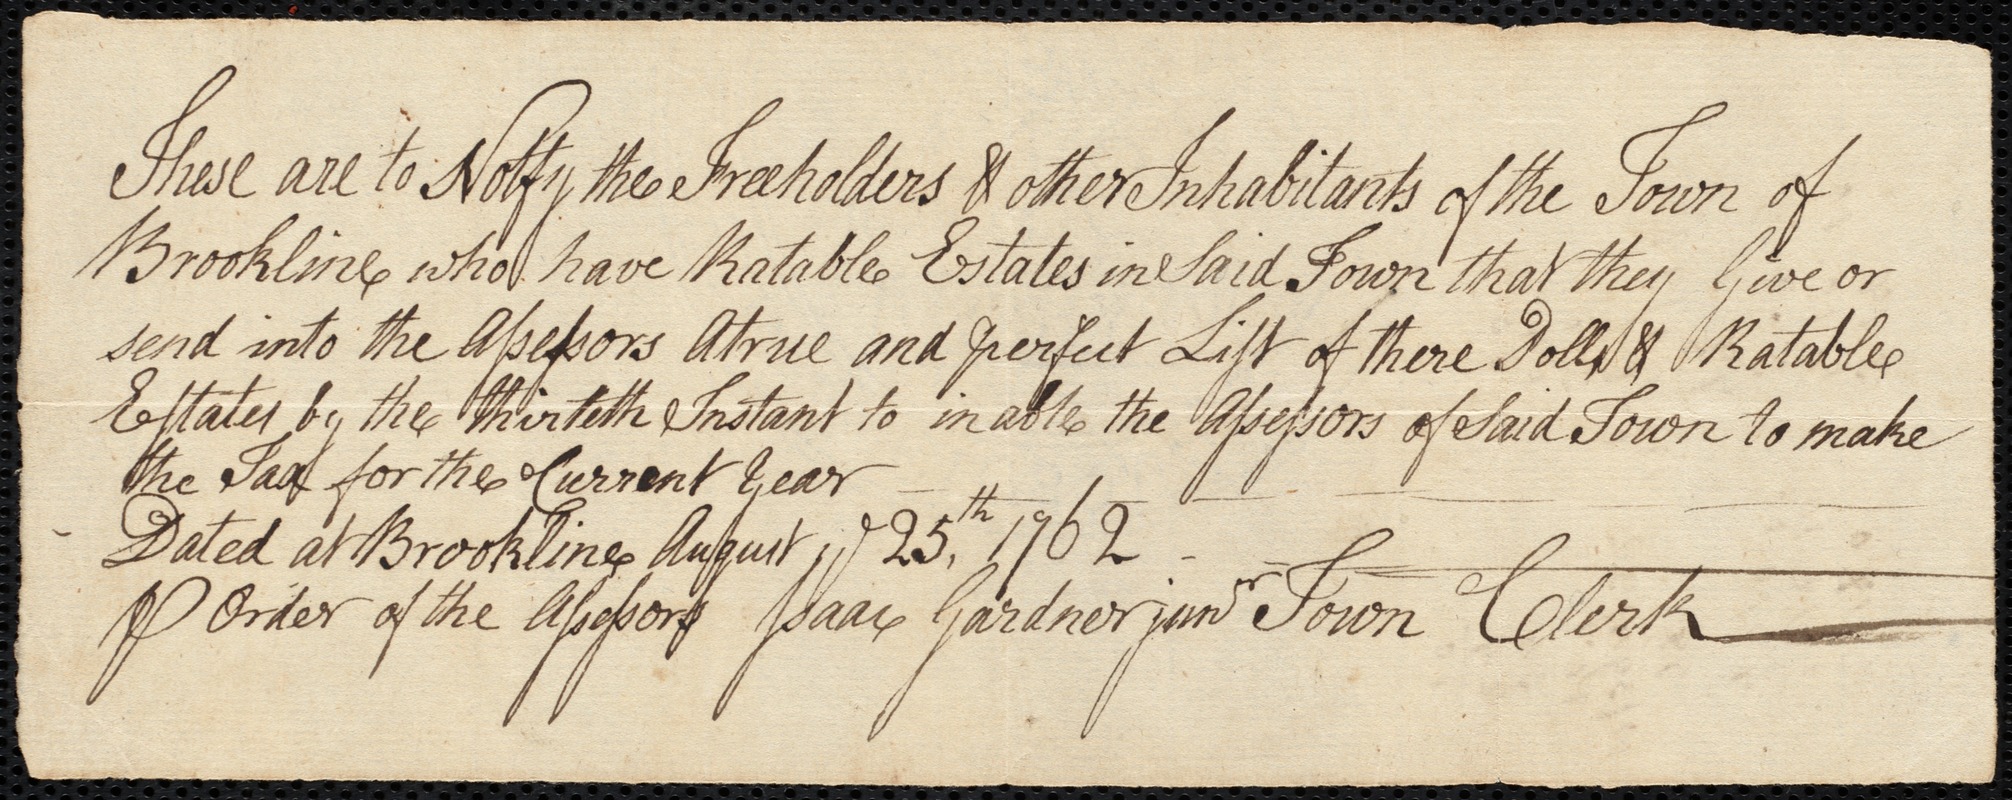 These are to Notfy the Freeholders & other Inhabitants of the Town of
Brookline who have Ratable Estates in Said Town that they Give or
send into the Assessors Atrue and perfect List of there Polls & Ratable
Estates by the thirteth Instant to inable the Assessors of Said Town to make
the Tax for the Current Year
Dated at Brookline August ye 25th, 1762
P Order of the Assessors Isaac Gardner junr Town Clerk